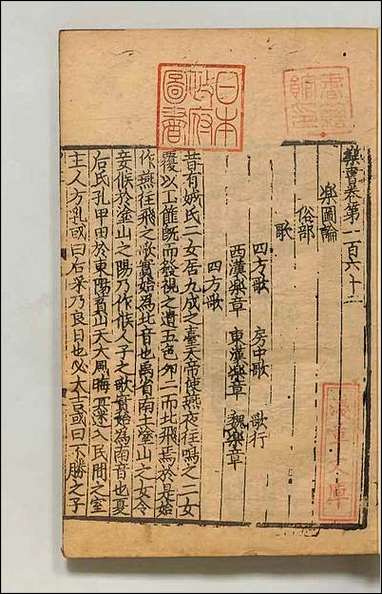 書籍館印
日本政府圖書
樂書卷第一百六十二
樂圖論
俗部
歌
四方歌 房中歌 歌行
西漢樂章 東漢樂章 魏樂章
四方歌
昔有娀氏二女居九成之臺天帝使燕夜往鳴之二女
覆以玉筐既而發視之遺五色卵二而北飛焉於是始
作燕往飛之歌實始為北音也禹省南土塗山之女令
妾候於塗山之陽乃作候人子之歌實始為南音也夏
后氏孔甲田於東陽萯山天大風晦冥迷入民間之室
主人方乳或曰后來乃良日也必大吉或曰不勝之子
淺草文庫